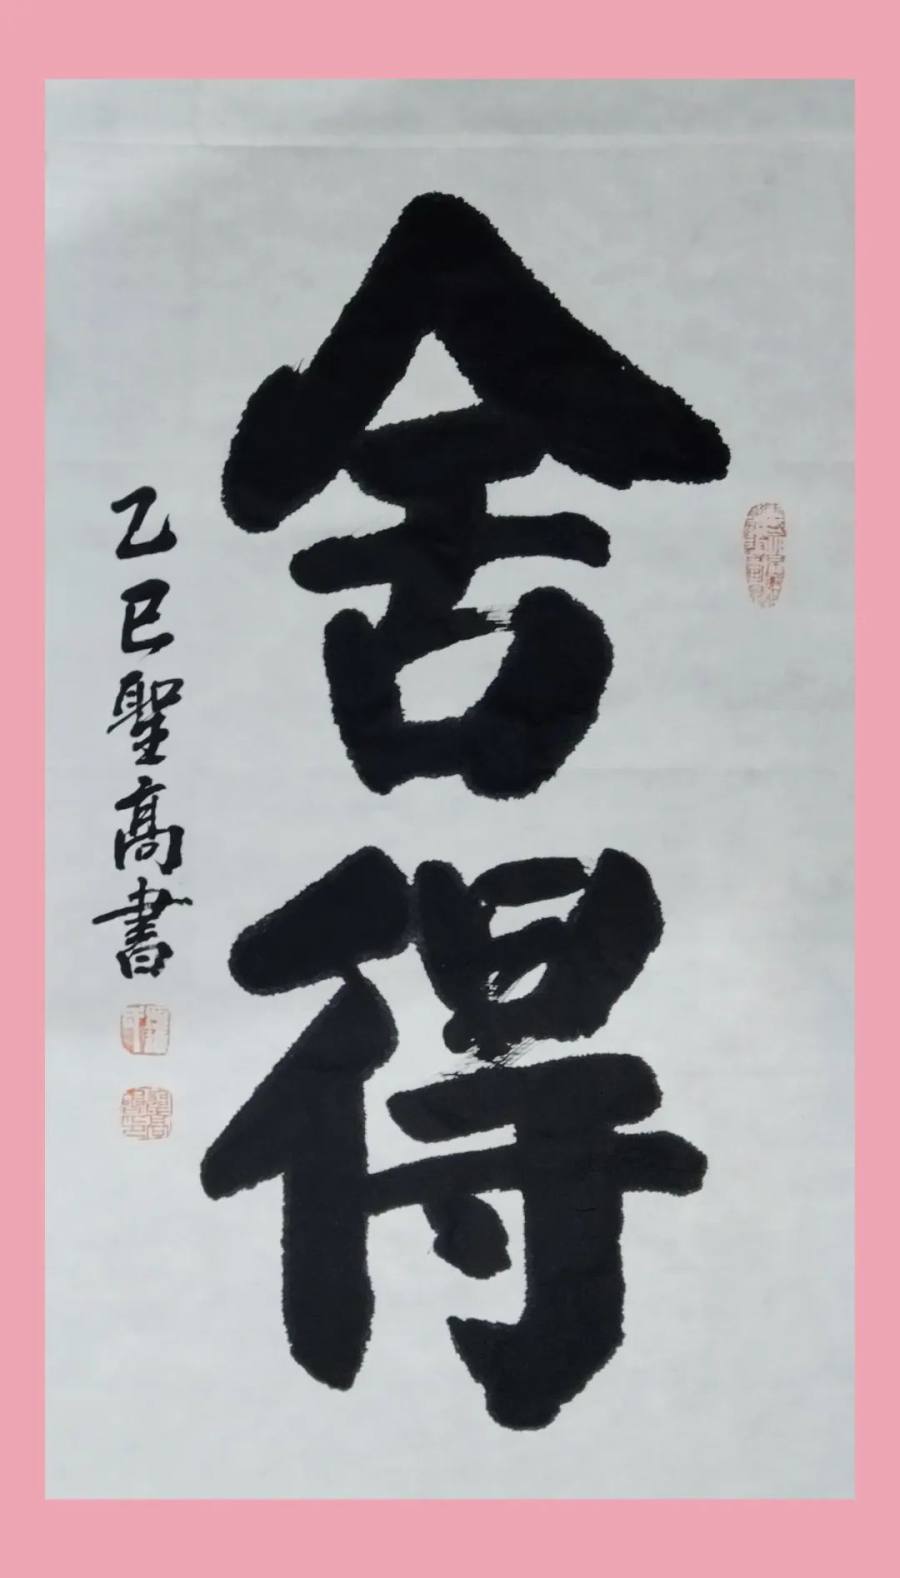 舍得
乙巳聖高書